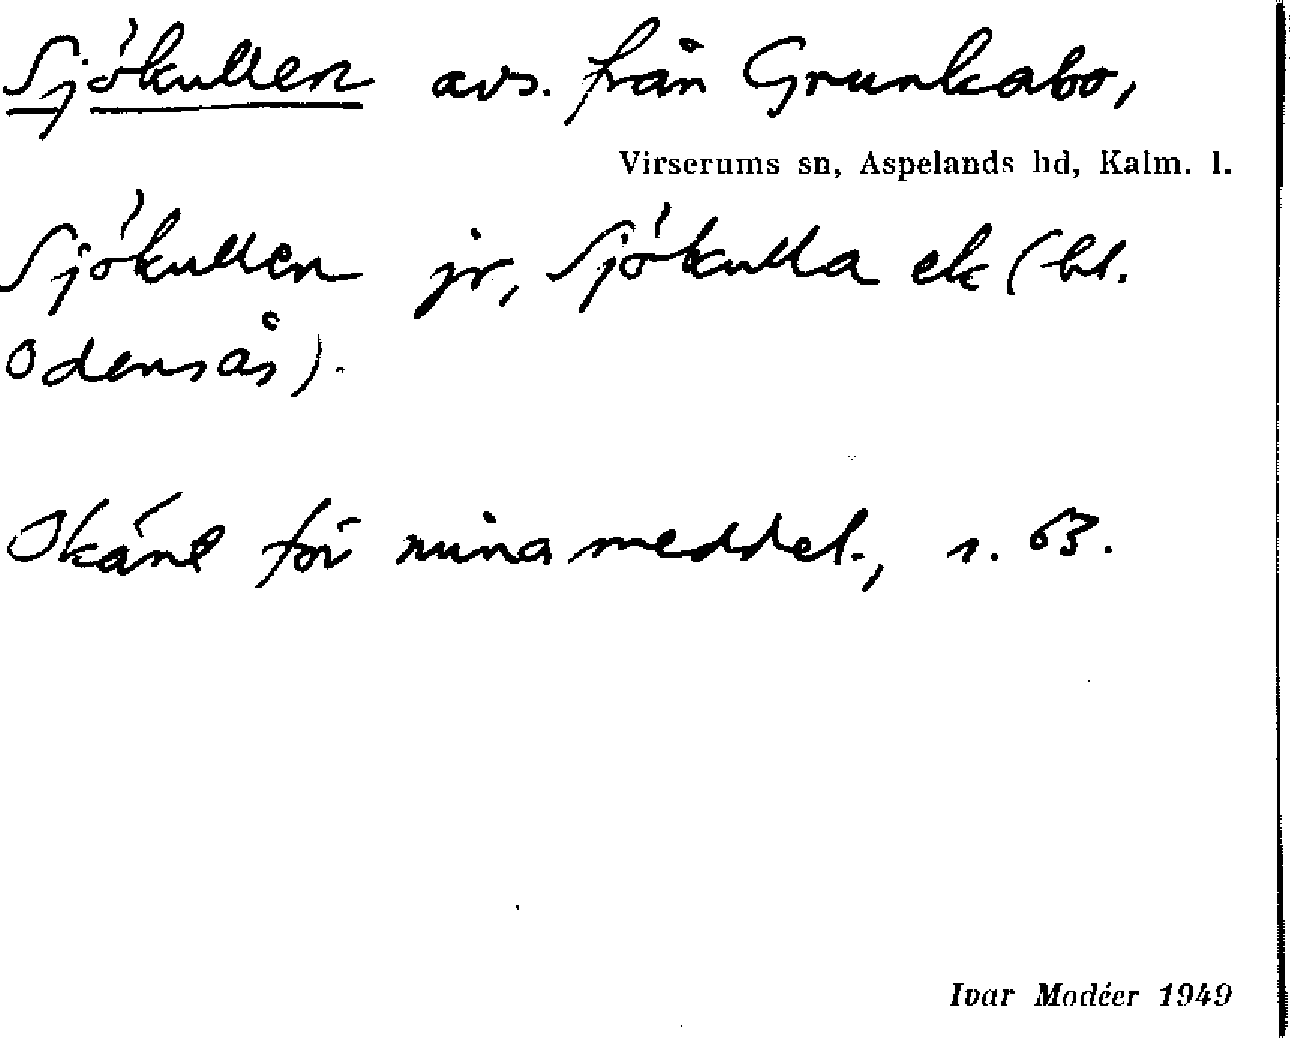 Sjökullen avs. från Grunkabo,
Virserums sn, Aspelands hd, Kalm. l.
Sjökullen jr, Sjökulla ek (bl.
Odensås).
Okänt för mina meddel., s. 63.
Ivar Modéer 1949